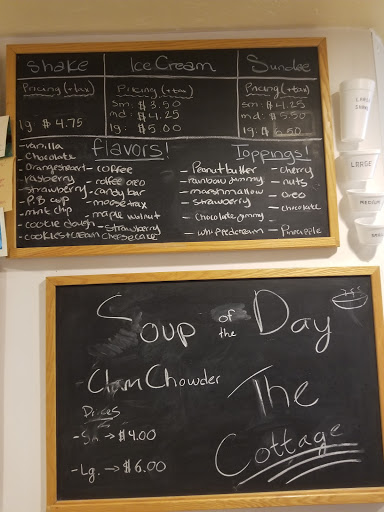 Shake
Ice Cream
Sundae
Pricing (+tax)
lg: $4.75
Pricing (+tax)
sm: $3.50
md: $4.25
lg: $5.00
Pricing (+tax)
sm: $4.25
md: $5.50
lg: $6.50
flavors!
-vanilla
-Chocolate
-raspberry
-strawberry
-P.B cup
-mint chip
-cookie dough
-cookies+cream
-coffee
-coffee oreo
-candy bar
-moosetrax
-maple walnut
-strawberry
cheesecake
Toppings!
-Peanutbutter
-rainbow jimmy
-marshmallow
-strawberry
-chocolate jimmy
-whippedcream
-cherry
-nuts
-oreo
-chocolate
-Pineapple
LARGE
MEDIUM
Soup of the Day
-Clam Chowder
Prices
-Sm. → $4.00
-Lg. → $6.00
The
Cottage